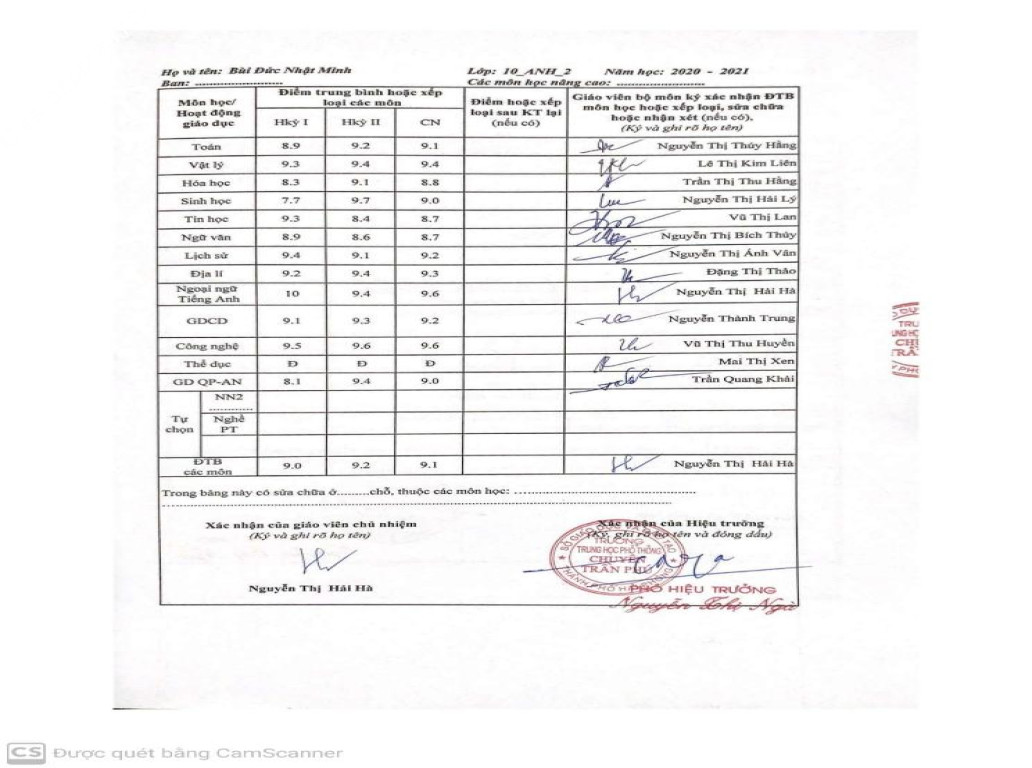 Họ và tên: Bùi Đức Nhật Minh Lớp: 10_ANH_2 Năm học: 2020 - 2021
Ban: .......................... Các môn học nâng cao: ..........................
Môn học/ Hoạt động giáo dục Điểm trung bình hoặc xếp loại các môn Điểm hoặc xếp loại sau KT lại (nếu có) Giáo viên bộ môn ký xác nhận ĐTB môn học hoặc xếp loại, sửa chữa hoặc nhận xét (nếu có). (Ký và ghi rõ họ tên)
Hkỳ I Hkỳ II CN
Toán 8.9 9.2 9.1 Nguyễn Thị Thúy Hằng
Vật lý 9.3 9.4 9.4 Lê Thị Kim Liên
Hóa học 8.3 9.1 8.8 Trần Thị Thu Hằng
Sinh học 7.7 9.7 9.0 Nguyễn Thị Hải Lý
Tin học 9.3 8.4 8.7 Vũ Thị Lan
Ngữ văn 8.9 8.6 8.7 Nguyễn Thị Bích Thủy
Lịch sử 9.4 9.1 9.2 Nguyễn Thị Ánh Vân
Địa lí 9.2 9.4 9.3 Đặng Thị Thảo
Ngoại ngữ Tiếng Anh 10 9.4 9.6 Nguyễn Thị Hải Hà
GDCD 9.1 9.3 9.2 Nguyễn Thành Trung
Công nghệ 9.5 9.6 9.6 Vũ Thị Thu Huyền
Thể dục Đ Đ Đ Mai Thị Xen
GD QP-AN 8.1 9.4 9.0 Trần Quang Khải
Tự chọn NN2 ............
Nghề PT
ĐTB các môn 9.0 9.2 9.1 Nguyễn Thị Hải Hà
Trong bảng này có sửa chữa ở.........chỗ, thuộc các môn học: ..........................
Xác nhận của giáo viên chủ nhiệm Xác nhận của Hiệu trưởng
(Ký và ghi rõ họ tên) (Ký, ghi rõ họ tên và đóng dấu)
SỞ GIÁO DỤC VÀ ĐÀO TẠO
TRƯỜNG
TRUNG HỌC PHỔ THÔNG
CHUYÊN
TRẦN PHÚ
Nguyễn Thị Hải Hà PHÓ HIỆU TRƯỞNG
Nguyễn Thị Ngà
CS Được quét bằng CamScanner